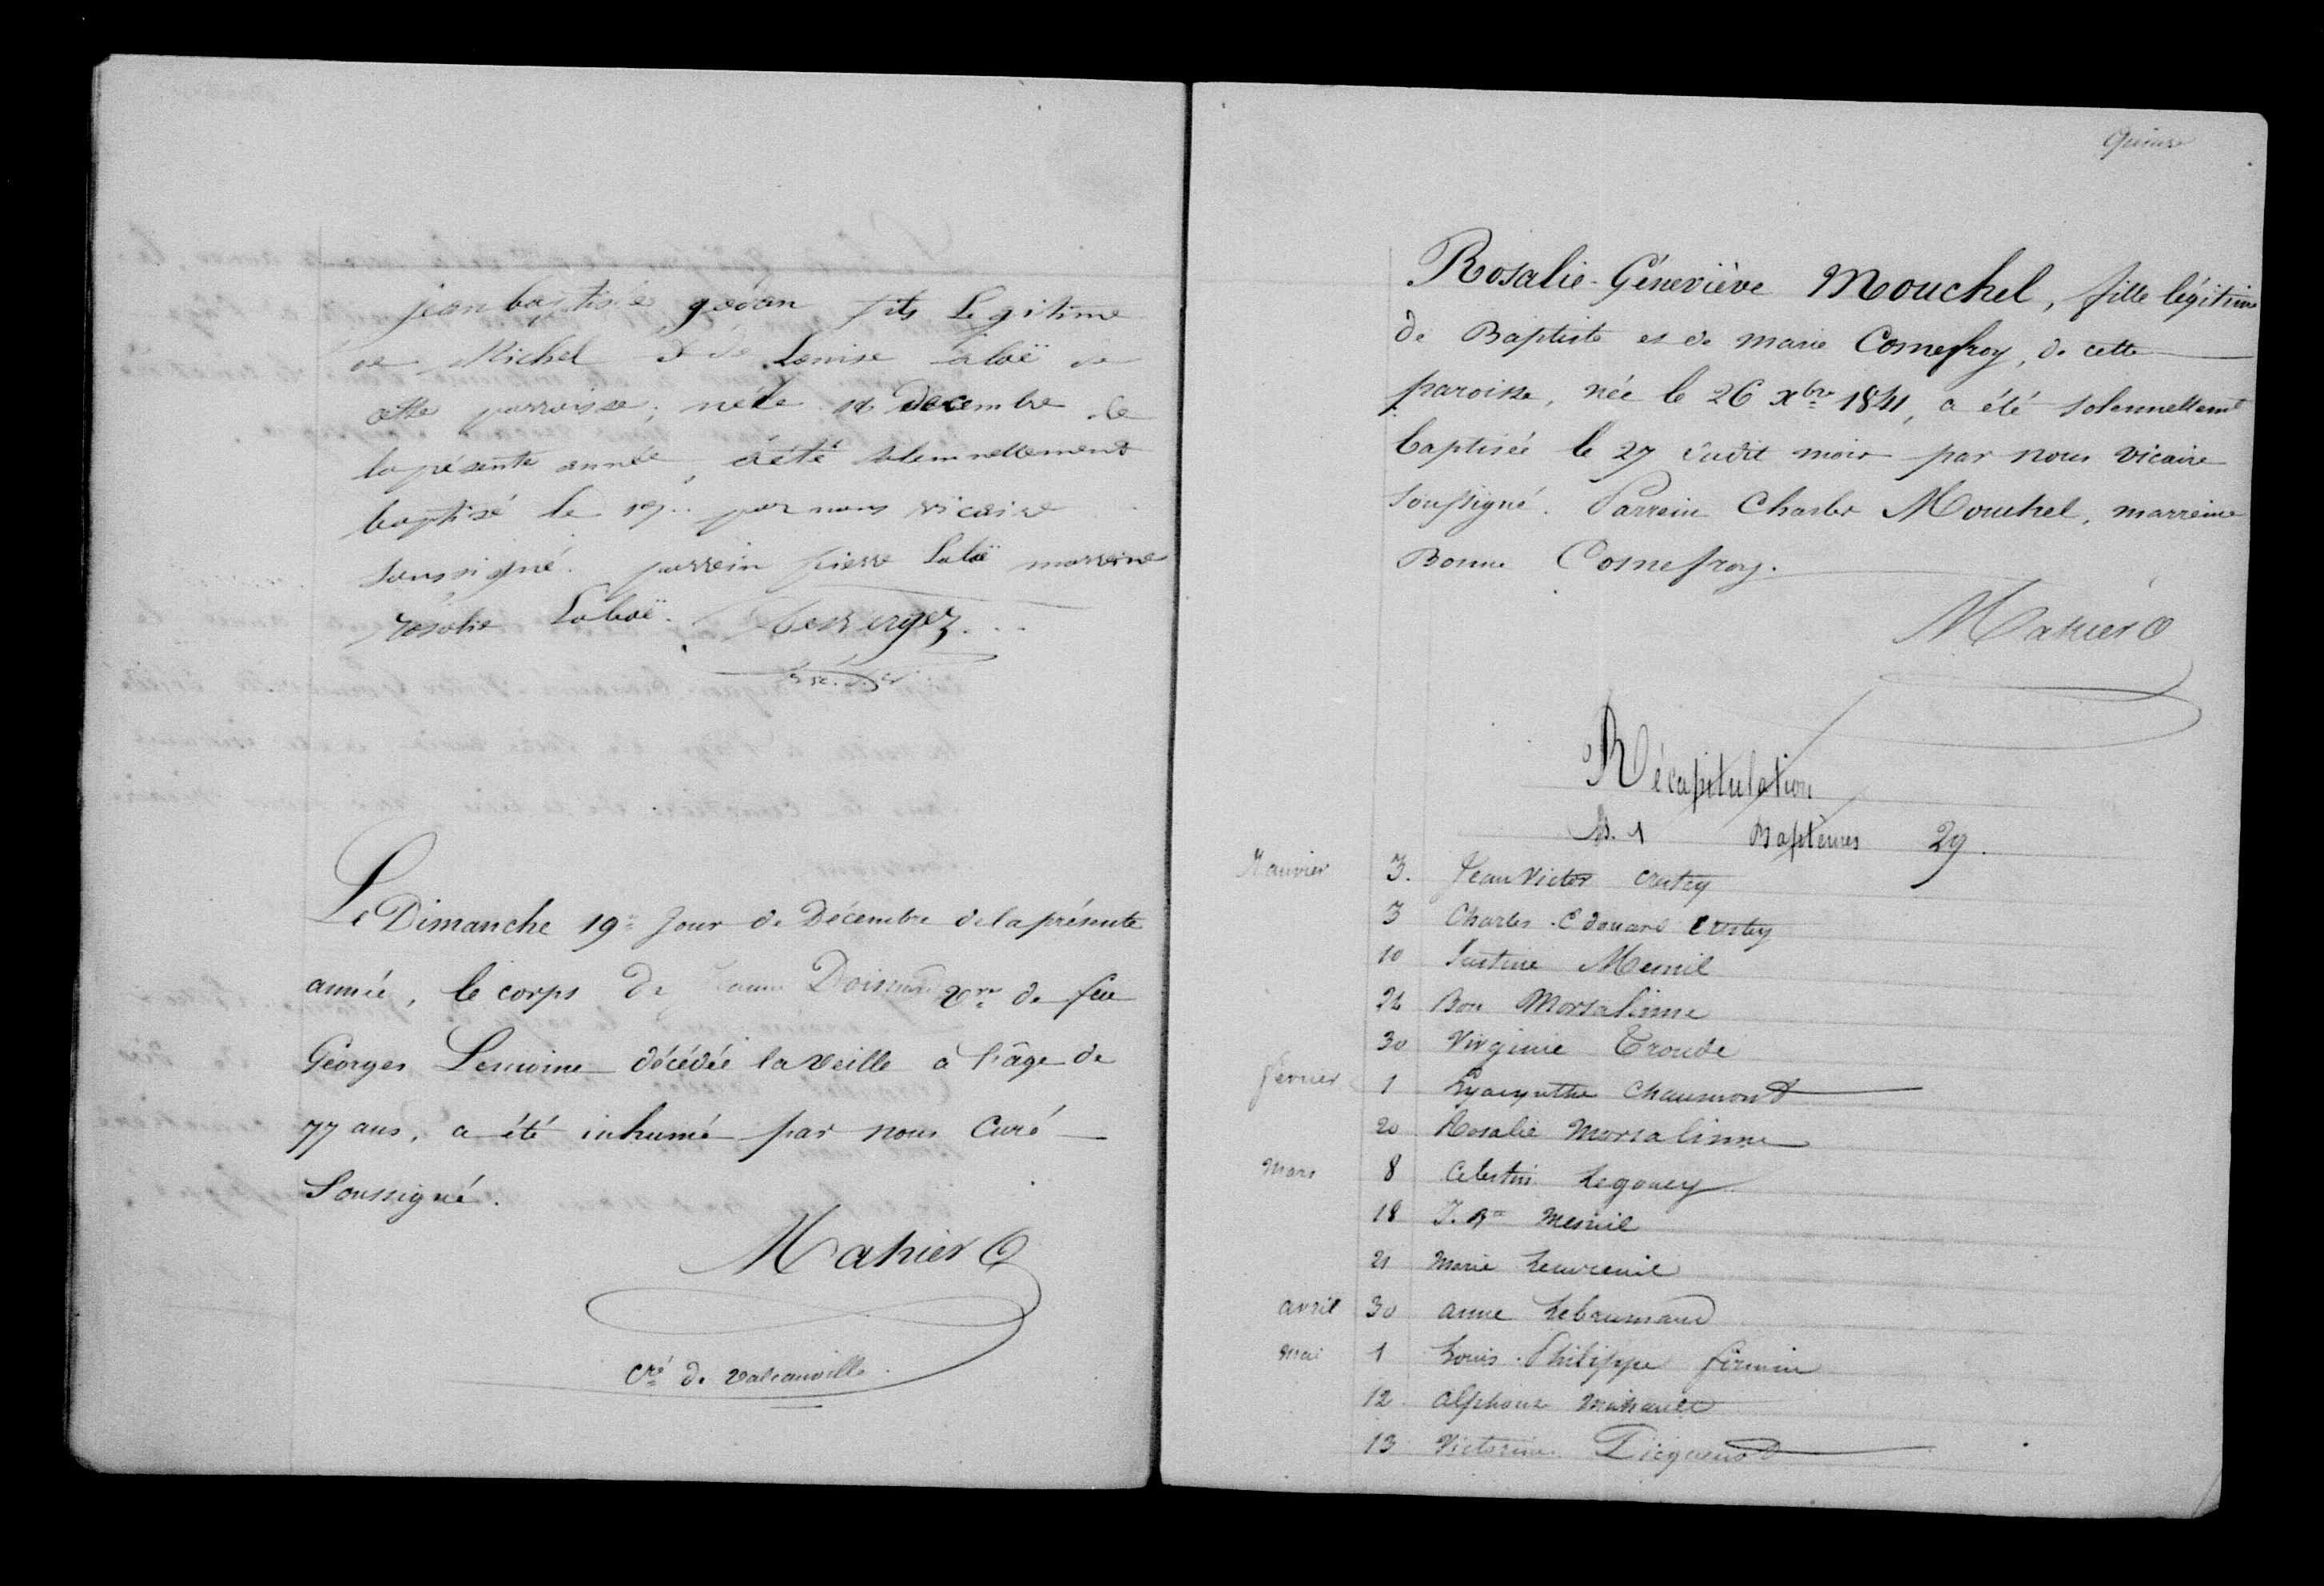 jean baptiste gédan fils Legitime
de Michel & de Louise aloë de
cette parroisse, né le 18 decembre de
la présente année, a été solemnellement
baptisé le 19 par nous vicaire
soussigné. parrein pierre Laloë marreine
rosalie Laloë.
Le Dimanche 19e Jour de Décembre de la présente
année, le corps de Doisnard vve de feu
Géorges Lemoine décédée la veille à l'âge de
77 ans, a été inhumé par nous Curé
Soussigné.
Mahier
cré de valcanville
quinze
Rosalie-Géneviève Mouchel, fille légitime
de Baptiste et de marie Cosnefroy, de cette
paroisse, née le 26 xbre 1841, a été solennellemt
baptisée le 27 dudit mois par nous vicaire
soussigné. Parrein Charles Mouchel, marreine
Bonne Cosnefroy.
Mahier
Récapitulation
§. 1 Baptêmes 29.
Janvier 3. Jean Victor Crestey
3 Charles-Edouard Crestey
10 Justine Mesnil
22 Bon Morsalinne
30 Virginie Troude
février 1 hyacynthe Chaumont
20 Rosalie Morsalinne
Mars 8 Celestin Legouey
18 J. Bte Mesnil
21 Marie
avril 30 anne Lebrumand
Mai 1 Louis-Philippe firmin
12 alphonse Mahault
13 Victorine Dicquemard